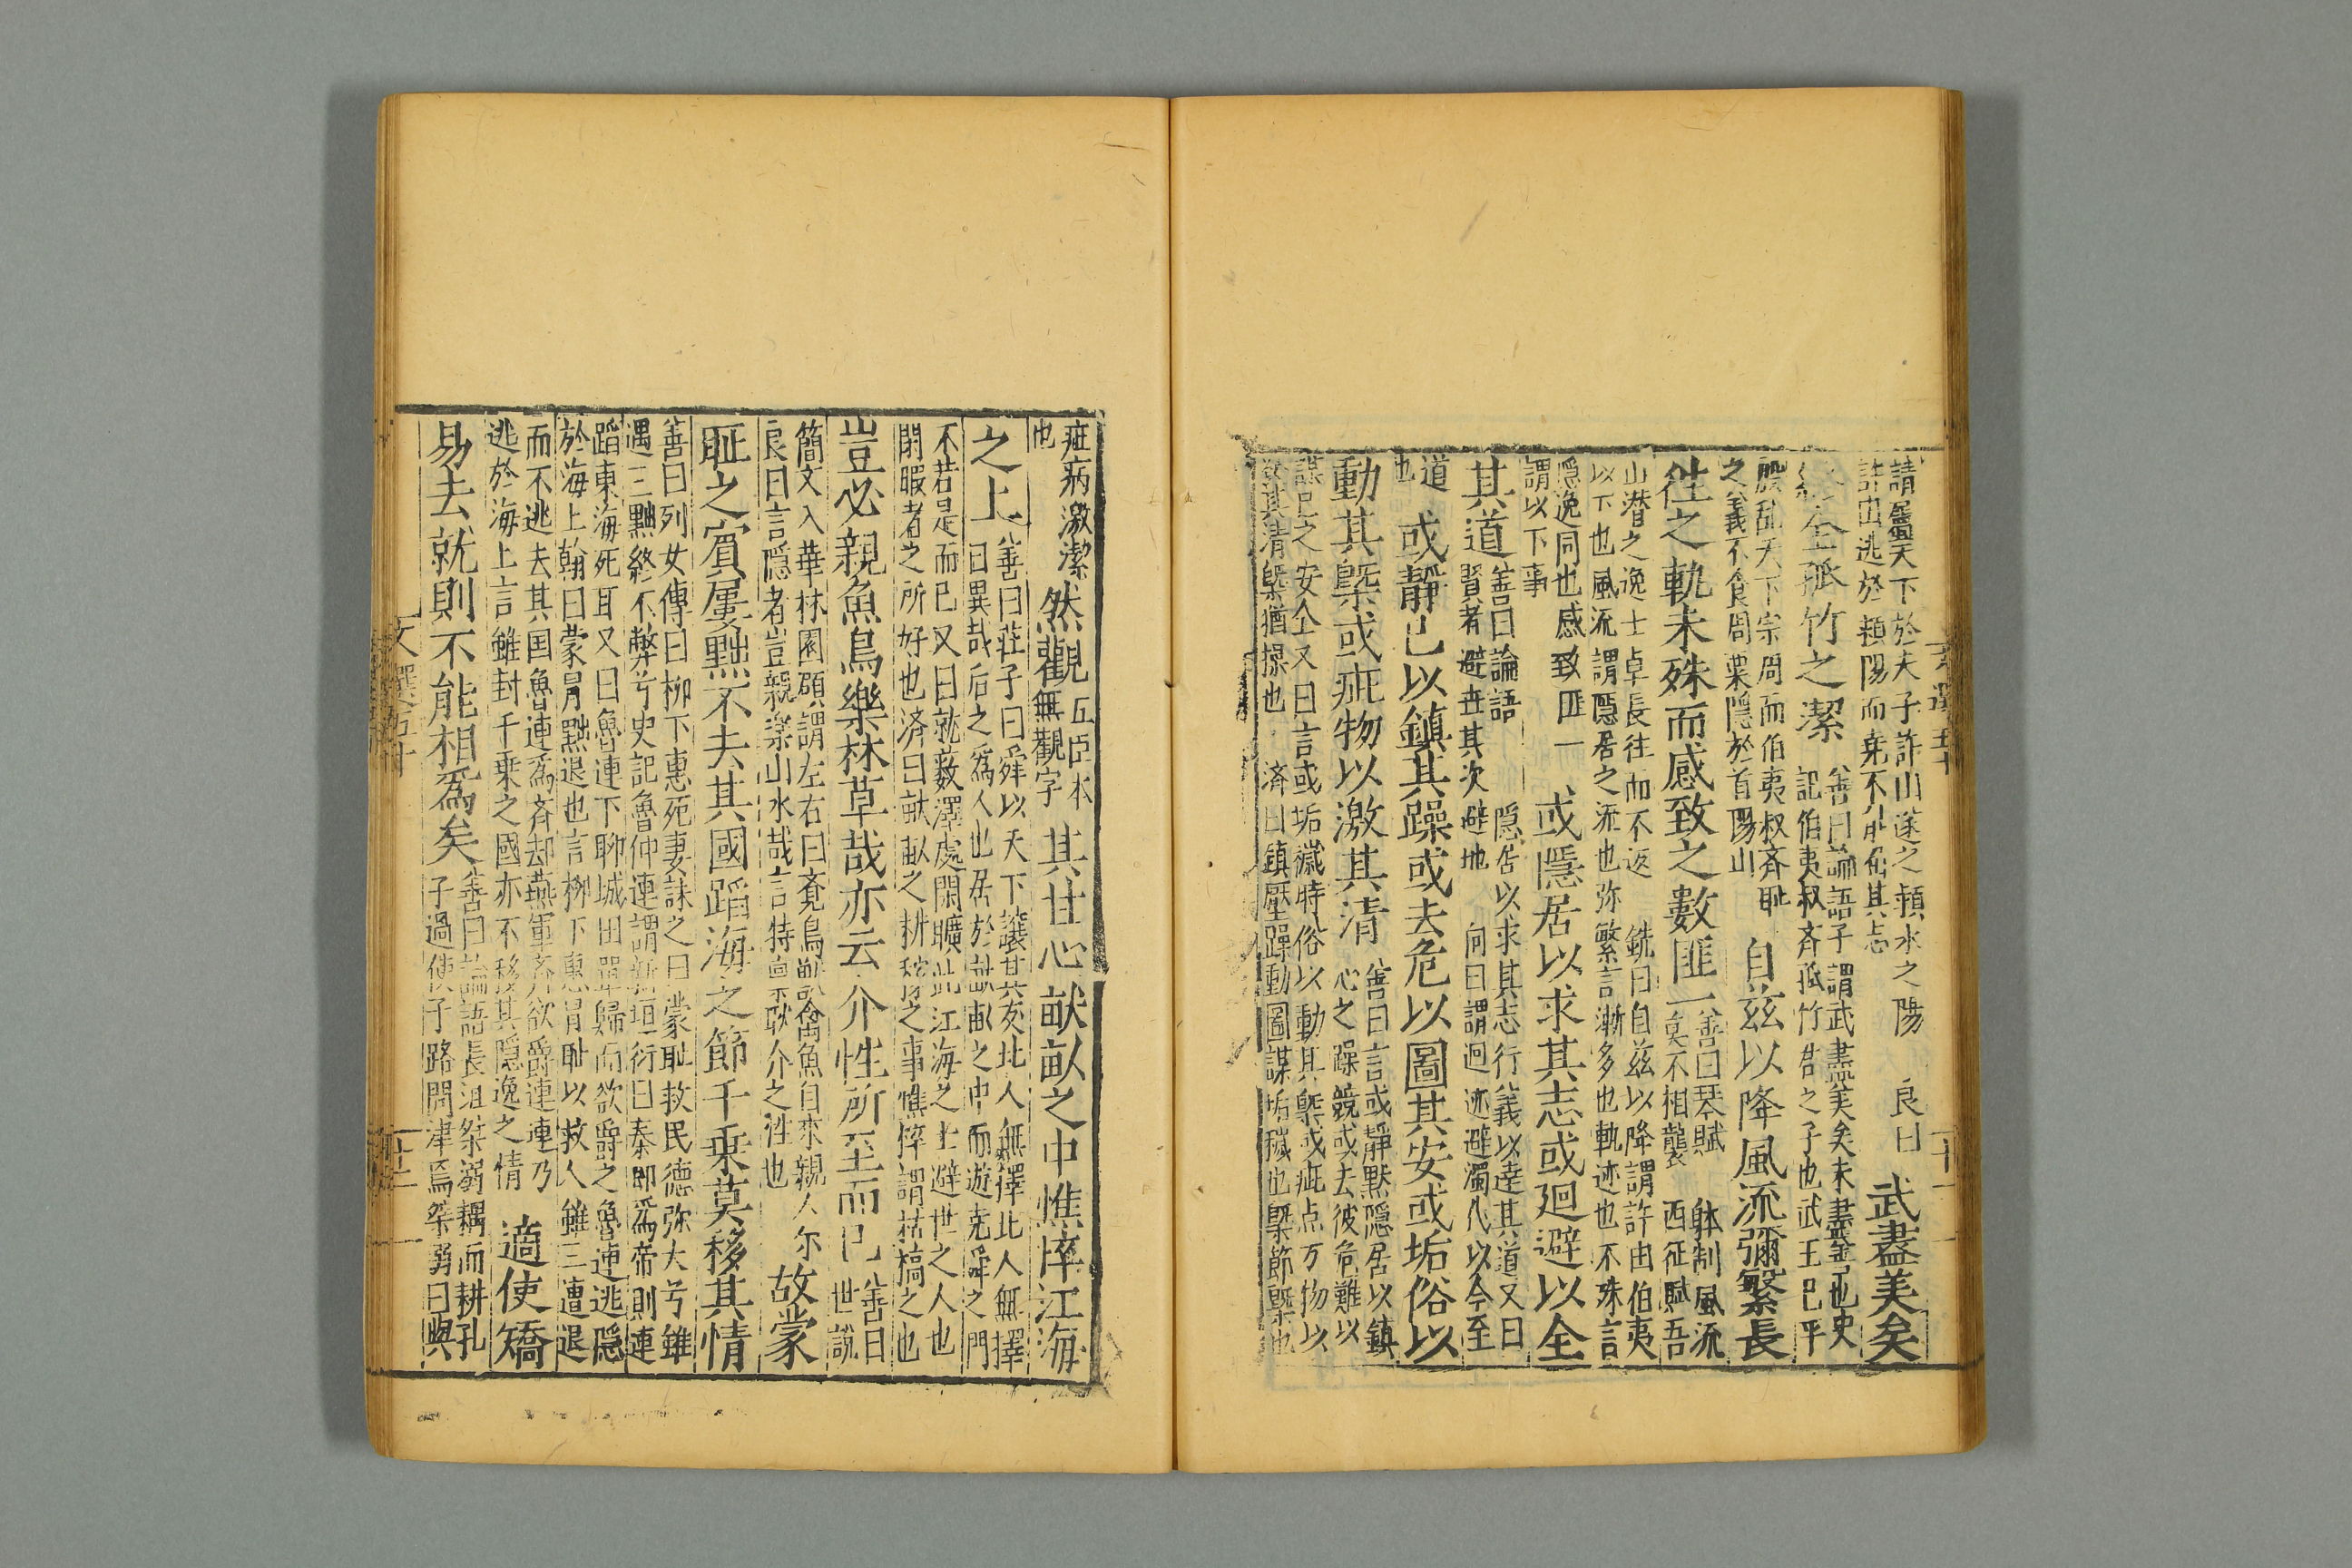 請屬天下於夫子許山遂之頴水之陽 良曰
許由逃於頴陽而堯不能屈其志
武盡美矣
全孤竹之潔
善曰論語子謂武盡美矣未盡善也史
記伯夷叔斉孤竹君之子也武王已平
殷乱天下宗周而伯夷叔斉耻
之義不食周粟隱於首陽山
自茲以降風流彌繁長
徃之軌未殊而感致之數匪一
善曰琴賦 躰制風流
莫不相襲 西征賦吾
山潜之逸士卓長往而不返 銑曰自茲以降謂許由伯夷
以下也風流謂隱居之流也弥繁言漸多也軌迹也不殊言
隱逸同也感致匪一
謂以下事
或隱居以求其志或廻避以全
其道
善曰論語 隱居以求其志行義以逹其道又曰
賢者避世其次避地 向曰謂迴迹避濁代以今至
道
也
或靜已以鎮其躁或去危以圖其安或垢俗以
動其槩或疵物以激其清
善曰言或靜默隱居以鎮
心之躁競或去彼危難以
謀己之安全又曰言或垢穢時俗以動其槩或疵点万物以
激其清槩猶操也 済曰鎮壓躁動圖謀垢穢也槩節槩也
疵病激潔
也
然觀
五臣本
無觀字
其甘心畎畝之中憔悴江海
之上
善曰莊子曰舜以天下讓其友北人無擇北人無擇
曰異哉后之為人也居於畎畝之中而遊尭舜之門
不若是而已又曰就薮澤處閑曠此江海之士避世之人也
閑暇者之所好也済曰畎畝之耕稼之事憔悴謂枯槁之也
豈必親魚鳥樂林草哉亦云介性所至而已
善曰
世說
簡文入華林園顧謂左右曰覺鳥獸禽魚自來親人尓
良曰言隱者豈親楽山水哉言特禀耿介之性也
故蒙
耻之賔屢黜不去其國蹈海之節千乗莫移其情
善曰列女傳曰柳下惠死妻誄之曰蒙耻救民德弥大兮雖
遇三黜終不弊兮史記魯仲連謂新垣衍曰秦即為帝則連
蹈東海死耳又曰魯連下聊城田單歸而欲爵之魯連逃隱
於海上翰曰蒙冒黜退也言柳下惠冒耻以救人雖三遭退
而不逃去其国魯連為斉却燕軍斉欲爵連連乃
逃於海上言雖封千乗之國亦不移其隱逸之情
適使矯
易去就則不能相為矣
善曰論語長沮桀溺耦而耕孔
子過使子路問津焉桀溺曰與